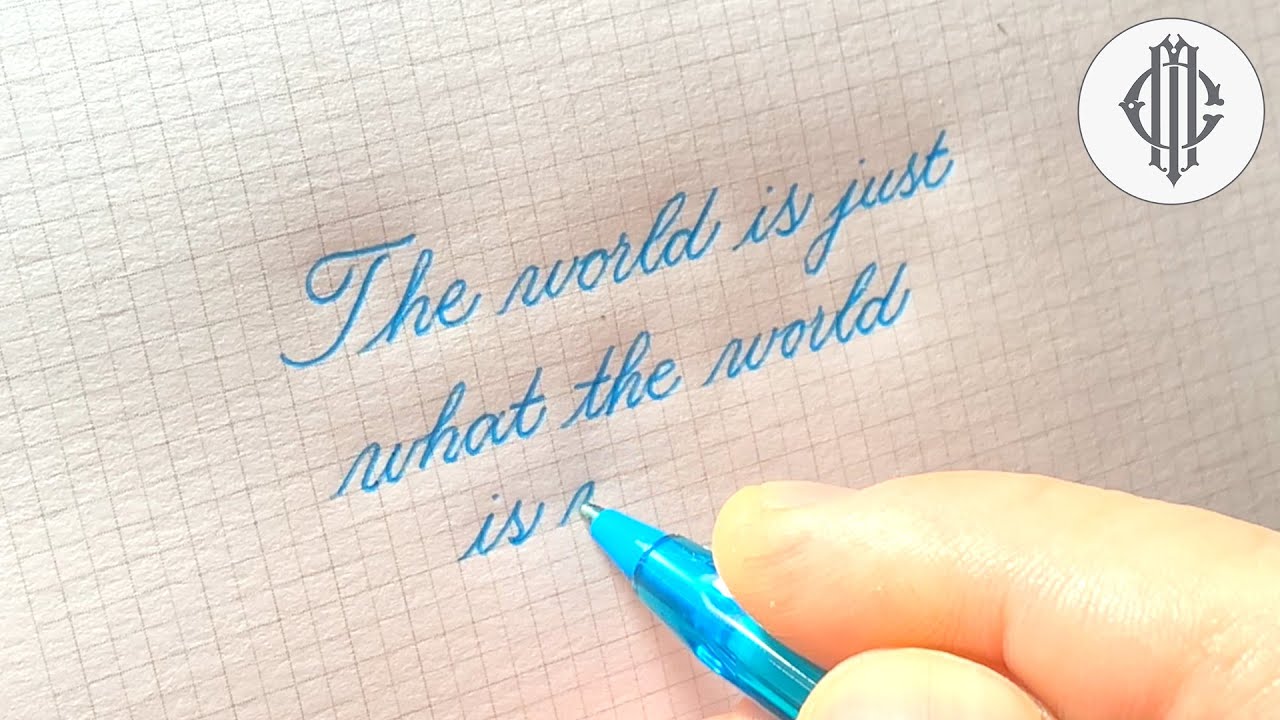 The world is just
what the world
is